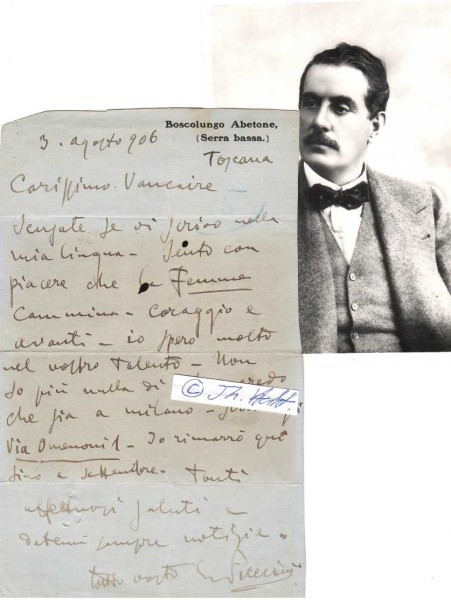 Boscolungo Abetone,
(Serra bassa.)
3. agosto 906
Toscana
Carissimo Vancaire
Scusate se vi scrivo nella
mia lingua - Sento con
piacere che la Femme
cammina - coraggio e
avanti - io spero molto
nel vostro talento - Non
so più nulla di credo
che sia a milano -
Via Omenoni 1 - Io rimarrò qui
sino a settembre - Tanti
affettuosi saluti e
datemi sempre notizie.
tutto vostro G Puccini
©